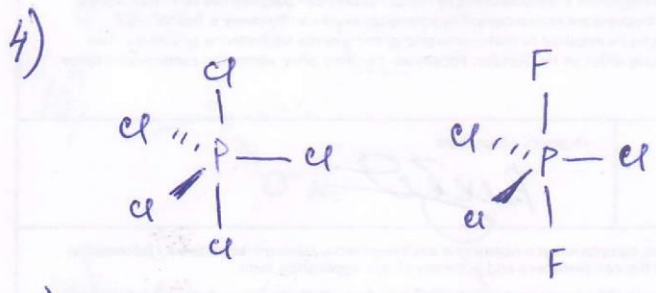 4)
Cl F
Cl P Cl Cl P Cl
Cl Cl
Cl F